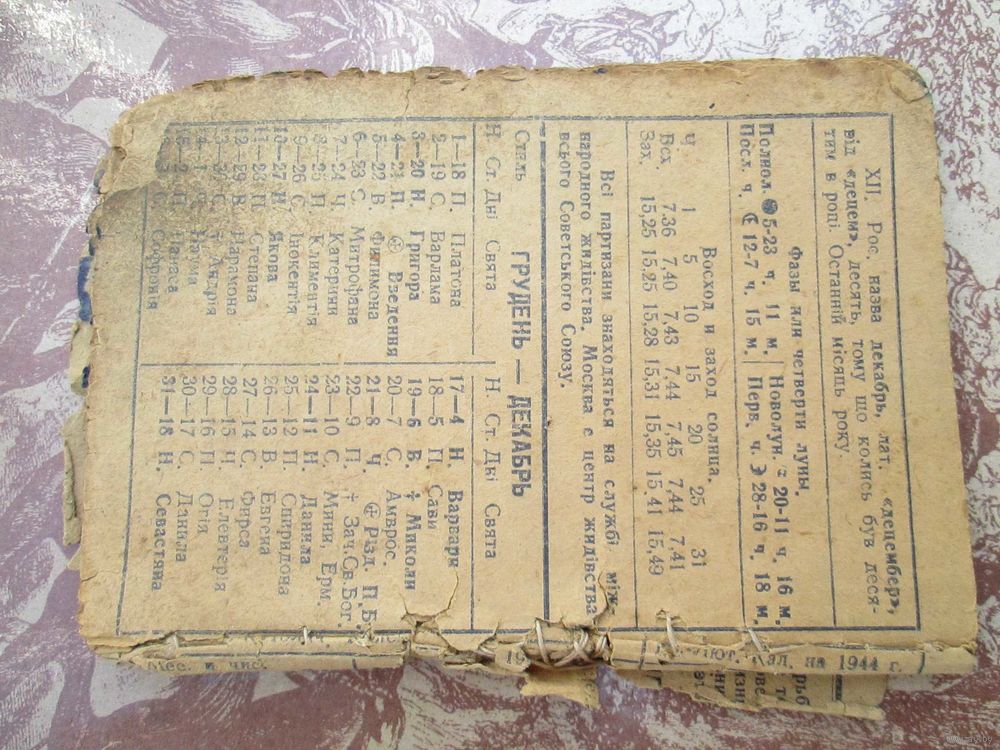 XII. Рос. назва декабрь, лат. «децембер»,
від «децем», десять, тому що колись був деся-
тим в році. Останній місяць року
Фазы или четверти луны.
Полнол. 5-23 ч. 11 м. Новолун. 20-11 ч. 16 м.
Посл. ч. 12-7 ч. 15 м. Перв. ч. 28-16 ч. 18 м.
Восход и заход солнца.
Ч 1 5 10 15 20 25 31
Вох. 7.36 7,40 7,43 7,44 7,45 7,44 7,41
Зах. 15,25 15,25 15,28 15,31 15,35 15,41 15,49
Всі партизани знаходяться на службі між-
народного жидівства. Москва є центр жидівства
всього Советського Союзу.
ГРУДЕНЬ — ДЕКАБРЬ
Стиль
Н. Ст. Дні Свята
1—18 П. Платона
2—19 С. Варлама
3—20 Н. Григора
4—21 П. Введення
5—22 В. Филимона
6—23 С. Митрофана
7—24 Ч. Катерини
8—25 П. Климентія
9—26 С. Інокентія
10—27 Н. Якова
11—28 П. Степана
12—29 В. Парамона
Андрія
Наума
Софронія
Н. Ст. Дні Свята
17—4 Н. Варвари
18—5 П. Сави
19—6 В. † Миколи
20—7 С. Амврос.
21—8 Ч. Різд. П. Б.
22—9 П. † Зач. Св. Бог.
23—10 С. Мини, Ерм.
24—11 Н. Данила
25—12 П. Спиридона
26—13 В. Евгена
27—14 С. Фирса
28—15 Ч. Елевтерія
29—16 П. Онія
30—17 С. Данила
31—18 Н. Севастяна
Мес. и чис.
19
Кал. на 1944 г.